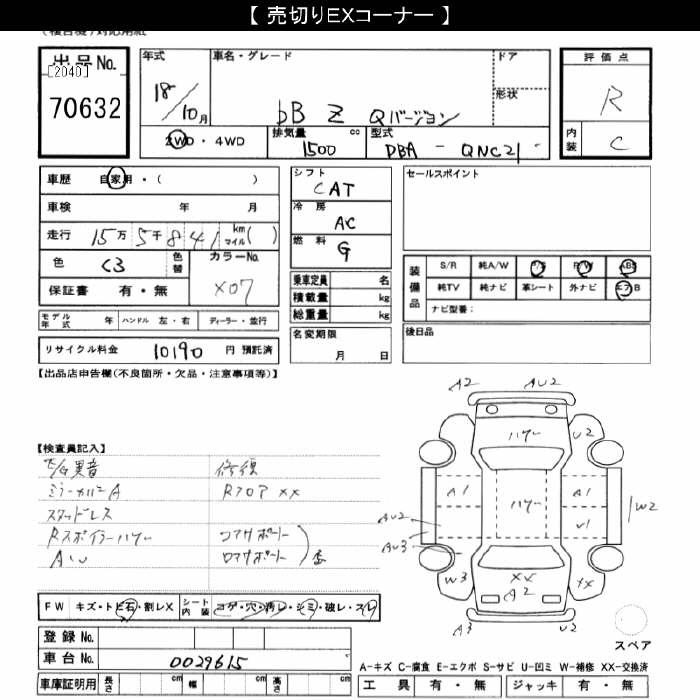 【 売切りEXコーナー 】
出品No.
[2040]
70632
年式
18/10月
車名・グレード
bB Z Qバージョン
ドア
形状
評価点
R
内装
C
2WD・4WD
排気量 cc
1500
型式
DBA - QNC21
車歴 自家用・( )
車検 年 月
走行 15万5千841 km マイル( )
色 C3
色替
カラーNo.
X07
保証書 有・無
シフト
CAT
冷房
AC
燃料
G
乗車定員 名
積載量 kg
総重量 kg
セールスポイント
装備品
S/R 純A/W P/S P/W ABS
純TV 純ナビ 革シート 外ナビ エアB
ナビ型番:
モデル年式 年 ハンドル 左・右 ディーラー・並行
リサイクル料金 10190 円 預託済
名変期限
月 日
後日品
【出品店申告欄(不良箇所・欠品・注意事項等)】
【検査員記入】
ミラーカバーA
スタッドレス
Rスポイラーハゲー
AU
修復
Rフロア XX
コアサポート
ロアサポート
歪
A2 AU2
ハゲー
U2
A1 ハゲー A1
W2
AU2
U1
AU3
W3 XX A2 XX
A3 U2
スペア
FW キズ・トビ石・割レX シート内装 コゲ・穴・汚レ・シミ・破レ・スレ
登録 No.
車台 No. 0029615
車庫証明用 長さ cm 幅 cm 高さ cm
A-キズ C-腐食 E-エクボ S-サビ U-凹ミ W-補修 XX-交換済
工具 有・無 ジャッキ 有・無